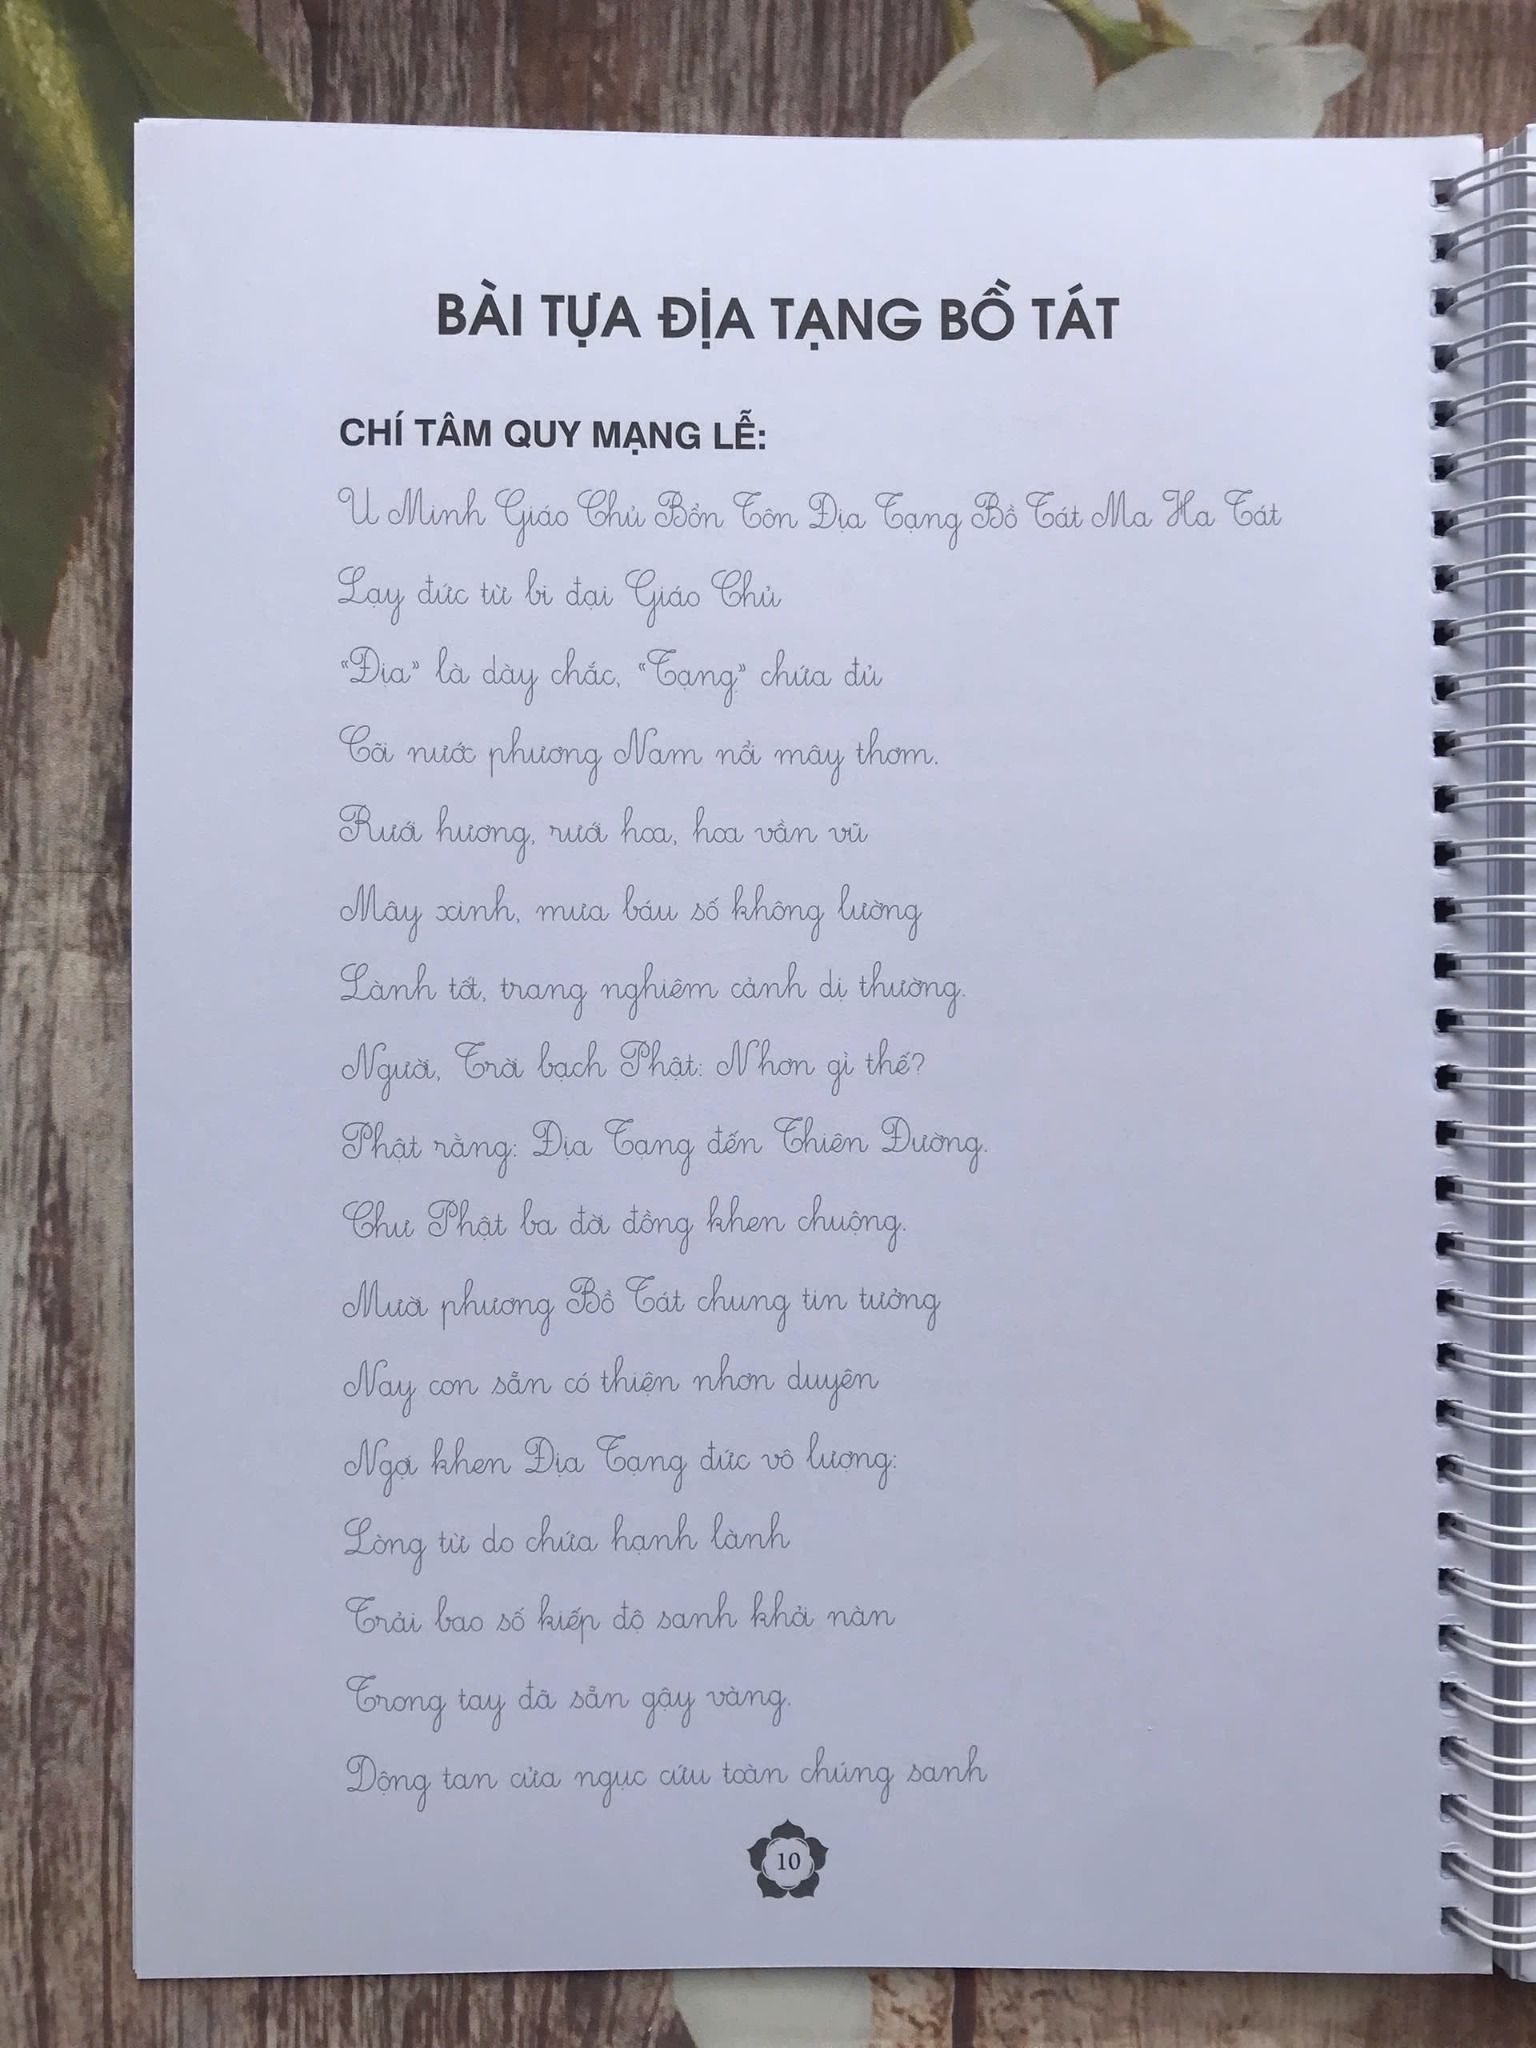 BÀI TỰA ĐỊA TẠNG BỒ TÁT
CHÍ TÂM QUY MẠNG LỄ:
U Minh Giáo Chủ Bổn Tôn Địa Tạng Bồ Tát Ma Ha Tát
Lạy đức từ bi đại Giáo Chủ
“Địa” là dày chắc, “Tạng” chứa đủ
Cõi nước phương Nam nổi mây thơm.
Rưới hương, rưới hoa, hoa vần vũ
Mây xinh, mưa báu số không lường
Lành tốt, trang nghiêm cảnh dị thường.
Người, Trời bạch Phật: Nhơn gì thế?
Phật rằng: Địa Tạng đến Thiên Đường.
Chư Phật ba đời đồng khen chuộng.
Mười phương Bồ Tát chung tin tưởng
Nay con sẵn có thiện nhơn duyên
Ngợi khen Địa Tạng đức vô lượng:
Lòng từ do chứa hạnh lành
Trải bao số kiếp độ sanh khỏi nàn
Trong tay đã sẵn gậy vàng.
Dộng tan cửa ngục cứu toàn chúng sanh
10